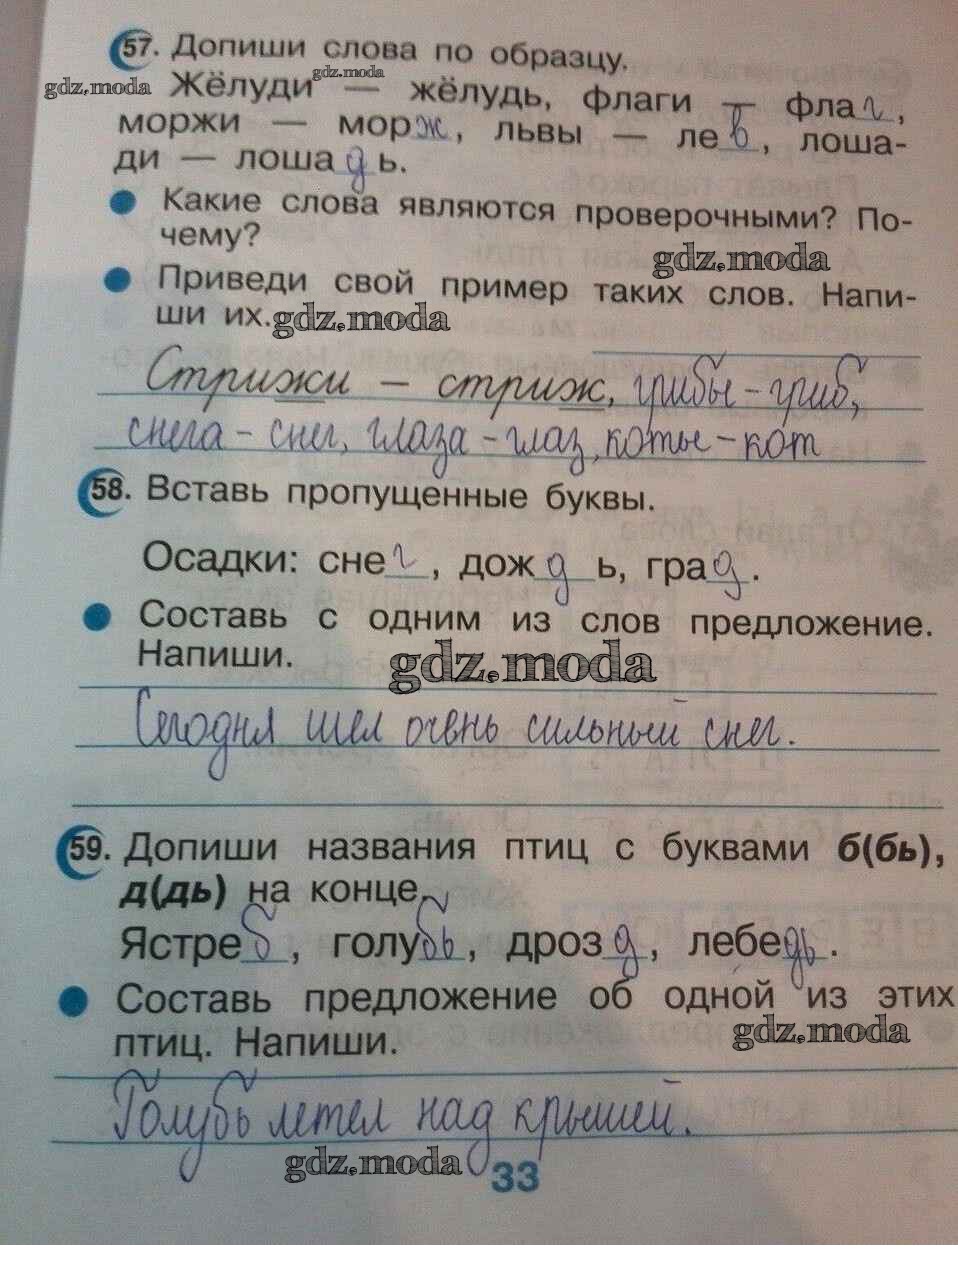 57. Допиши слова по образцу.
gdz.moda Жёлуди gdz.moda — жёлудь, флаги — флаг,
моржи — морж, львы — лев, лоша-
ди — лошадь.
Какие слова являются проверочными? По-
чему?
gdz.moda
Приведи свой пример таких слов. Напи-
ши их. gdz.moda
Стрижи – стриж, грибы – гриб,
снега – снег, глаза – глаз, коты – кот
58. Вставь пропущенные буквы.
Осадки: снег, дождь, град.
Составь с одним из слов предложение.
Напиши. gdz.moda
Сегодня шел очень сильный снег.
59. Допиши названия птиц с буквами б(бь),
д(дь) на конце.
Ястреб, голубь, дрозд, лебедь.
Составь предложение об одной из этих
птиц. Напиши. gdz.moda
Голубь летел над крышей.
gdz.moda
33